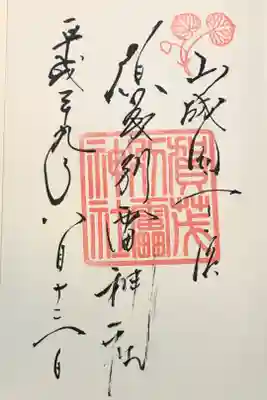 山城国一之宮
賀茂別雷神社
平成二九年八月十二日
賀茂別雷神社